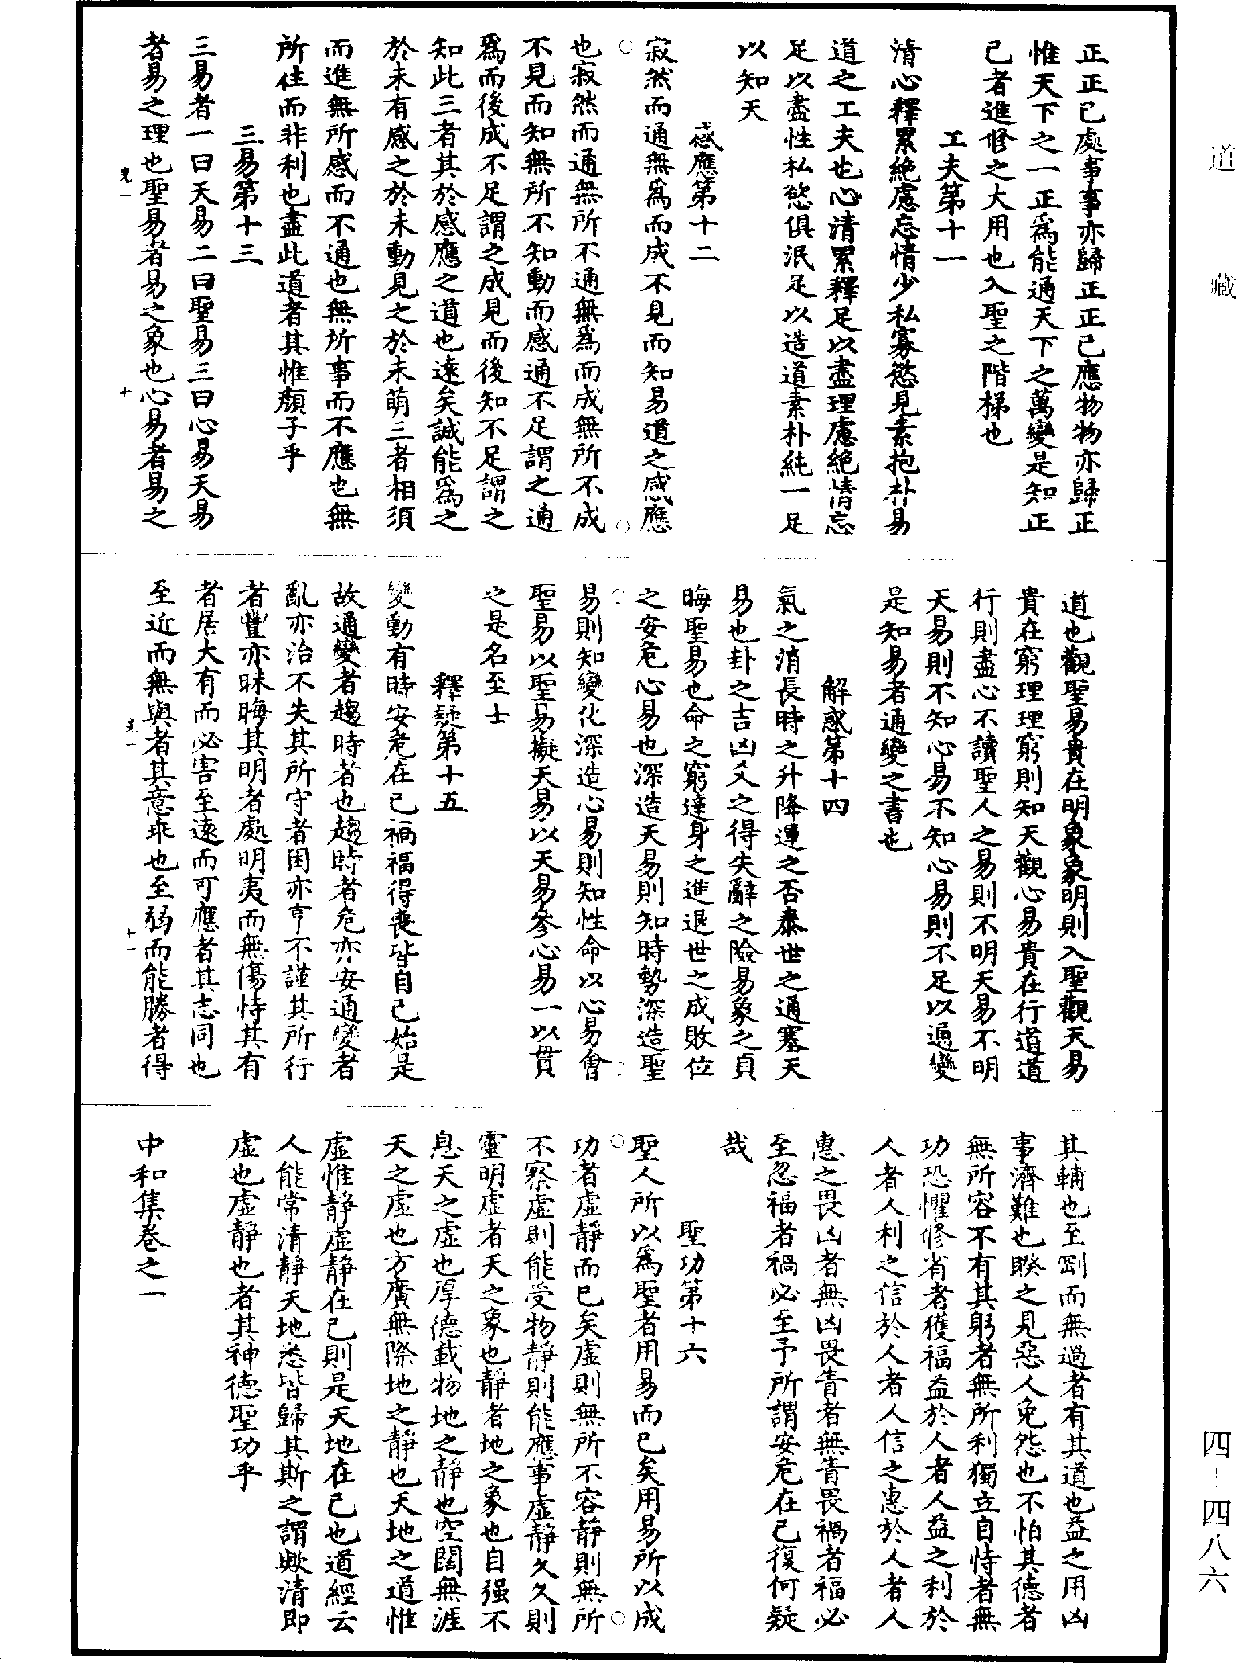 道藏
正正己處事事亦歸正正己應物物亦歸正
惟天下之一正爲能通天下之萬變是知正
己者進修之大用也入聖之階梯也
工夫第十一
清心釋累絶慮忘情少私寡慾見素抱朴易
道之工夫也心清累釋足以盡理慮絶情忘
足以盡性私慾俱泯足以造道素朴純一足
以知天
感應第十二
寂然而通無爲而成不見而知易道之感應
也寂然而通無所不通無爲而成無所不成
不見而知無所不知動而感通不足謂之通
爲而後成不足謂之成見而後知不足謂之
知此三者其於感應之道也遠矣誠能爲之
於未有感之於未動見之於未萌三者相須
而進無所感而不通也無所事而不應也無
所住而非利也盡此道者其惟顏子乎
三易第十三
三易者一曰天易二曰聖易三曰心易天易
者易之理也聖易者易之象也心易者易之
光一 十
道也觀聖易貴在明象象明則入聖觀天易
貴在窮理理窮則知天觀心易貴在行道道
行則盡心不讀聖人之易則不明天易不明
天易則不知心易不知心易則不足以通變
是知易者通變之書也
解惑第十四
氣之消長時之升降運之否泰世之通塞天
易也卦之吉凶爻之得失辭之險易象之貞
晦聖易也命之窮達身之進退世之成敗位
之安危心易也深造天易則知時勢深造聖
易則知變化深造心易則知性命以心易會
聖易以聖易擬天易以天易參心易一以貫
之是名至士
釋疑第十五
變動有時安危在己禍福得喪皆自己始是
故通變者趨時者也趨時者危亦安通變者
亂亦治不失其所守者困亦亨不謹其所行
者豐亦昧晦其明者處明夷而無傷恃其有
者居大有而必害至遠而可應者其志同也
至近而無與者其意乖也至弱而能勝者得
光一 十一
其輔也至剛而無過者有其道也益之用凶
事濟難也睽之見惡人免怨也不怕其德者
無所容不有其躬者無所利獨立自恃者無
功恐懼修省者獲福益於人者人益之利於
人者人利之信於人者人信之惠於人者人
惠之畏凶者無凶畏眚者無眚畏禍者福必
至忽福者禍必至予所謂安危在己復何疑
哉
聖功第十六
聖人所以爲聖者用易而已矣用易所以成
功者虚靜而已矣虚則無所不容靜則無所
不察虚則能受物靜則能應事虚靜久久則
靈明虚者天之象也靜者地之象也自强不
息天之虚也厚德載物地之靜也空闊無涯
天之虚也方廣無際地之靜也天地之道惟
虚惟靜虚靜在己則是天地在己也道經云
人能常清靜天地悉皆歸其斯之謂歟清即
虚也虚靜也者其神德聖功乎
中和集卷之一
四-四八六